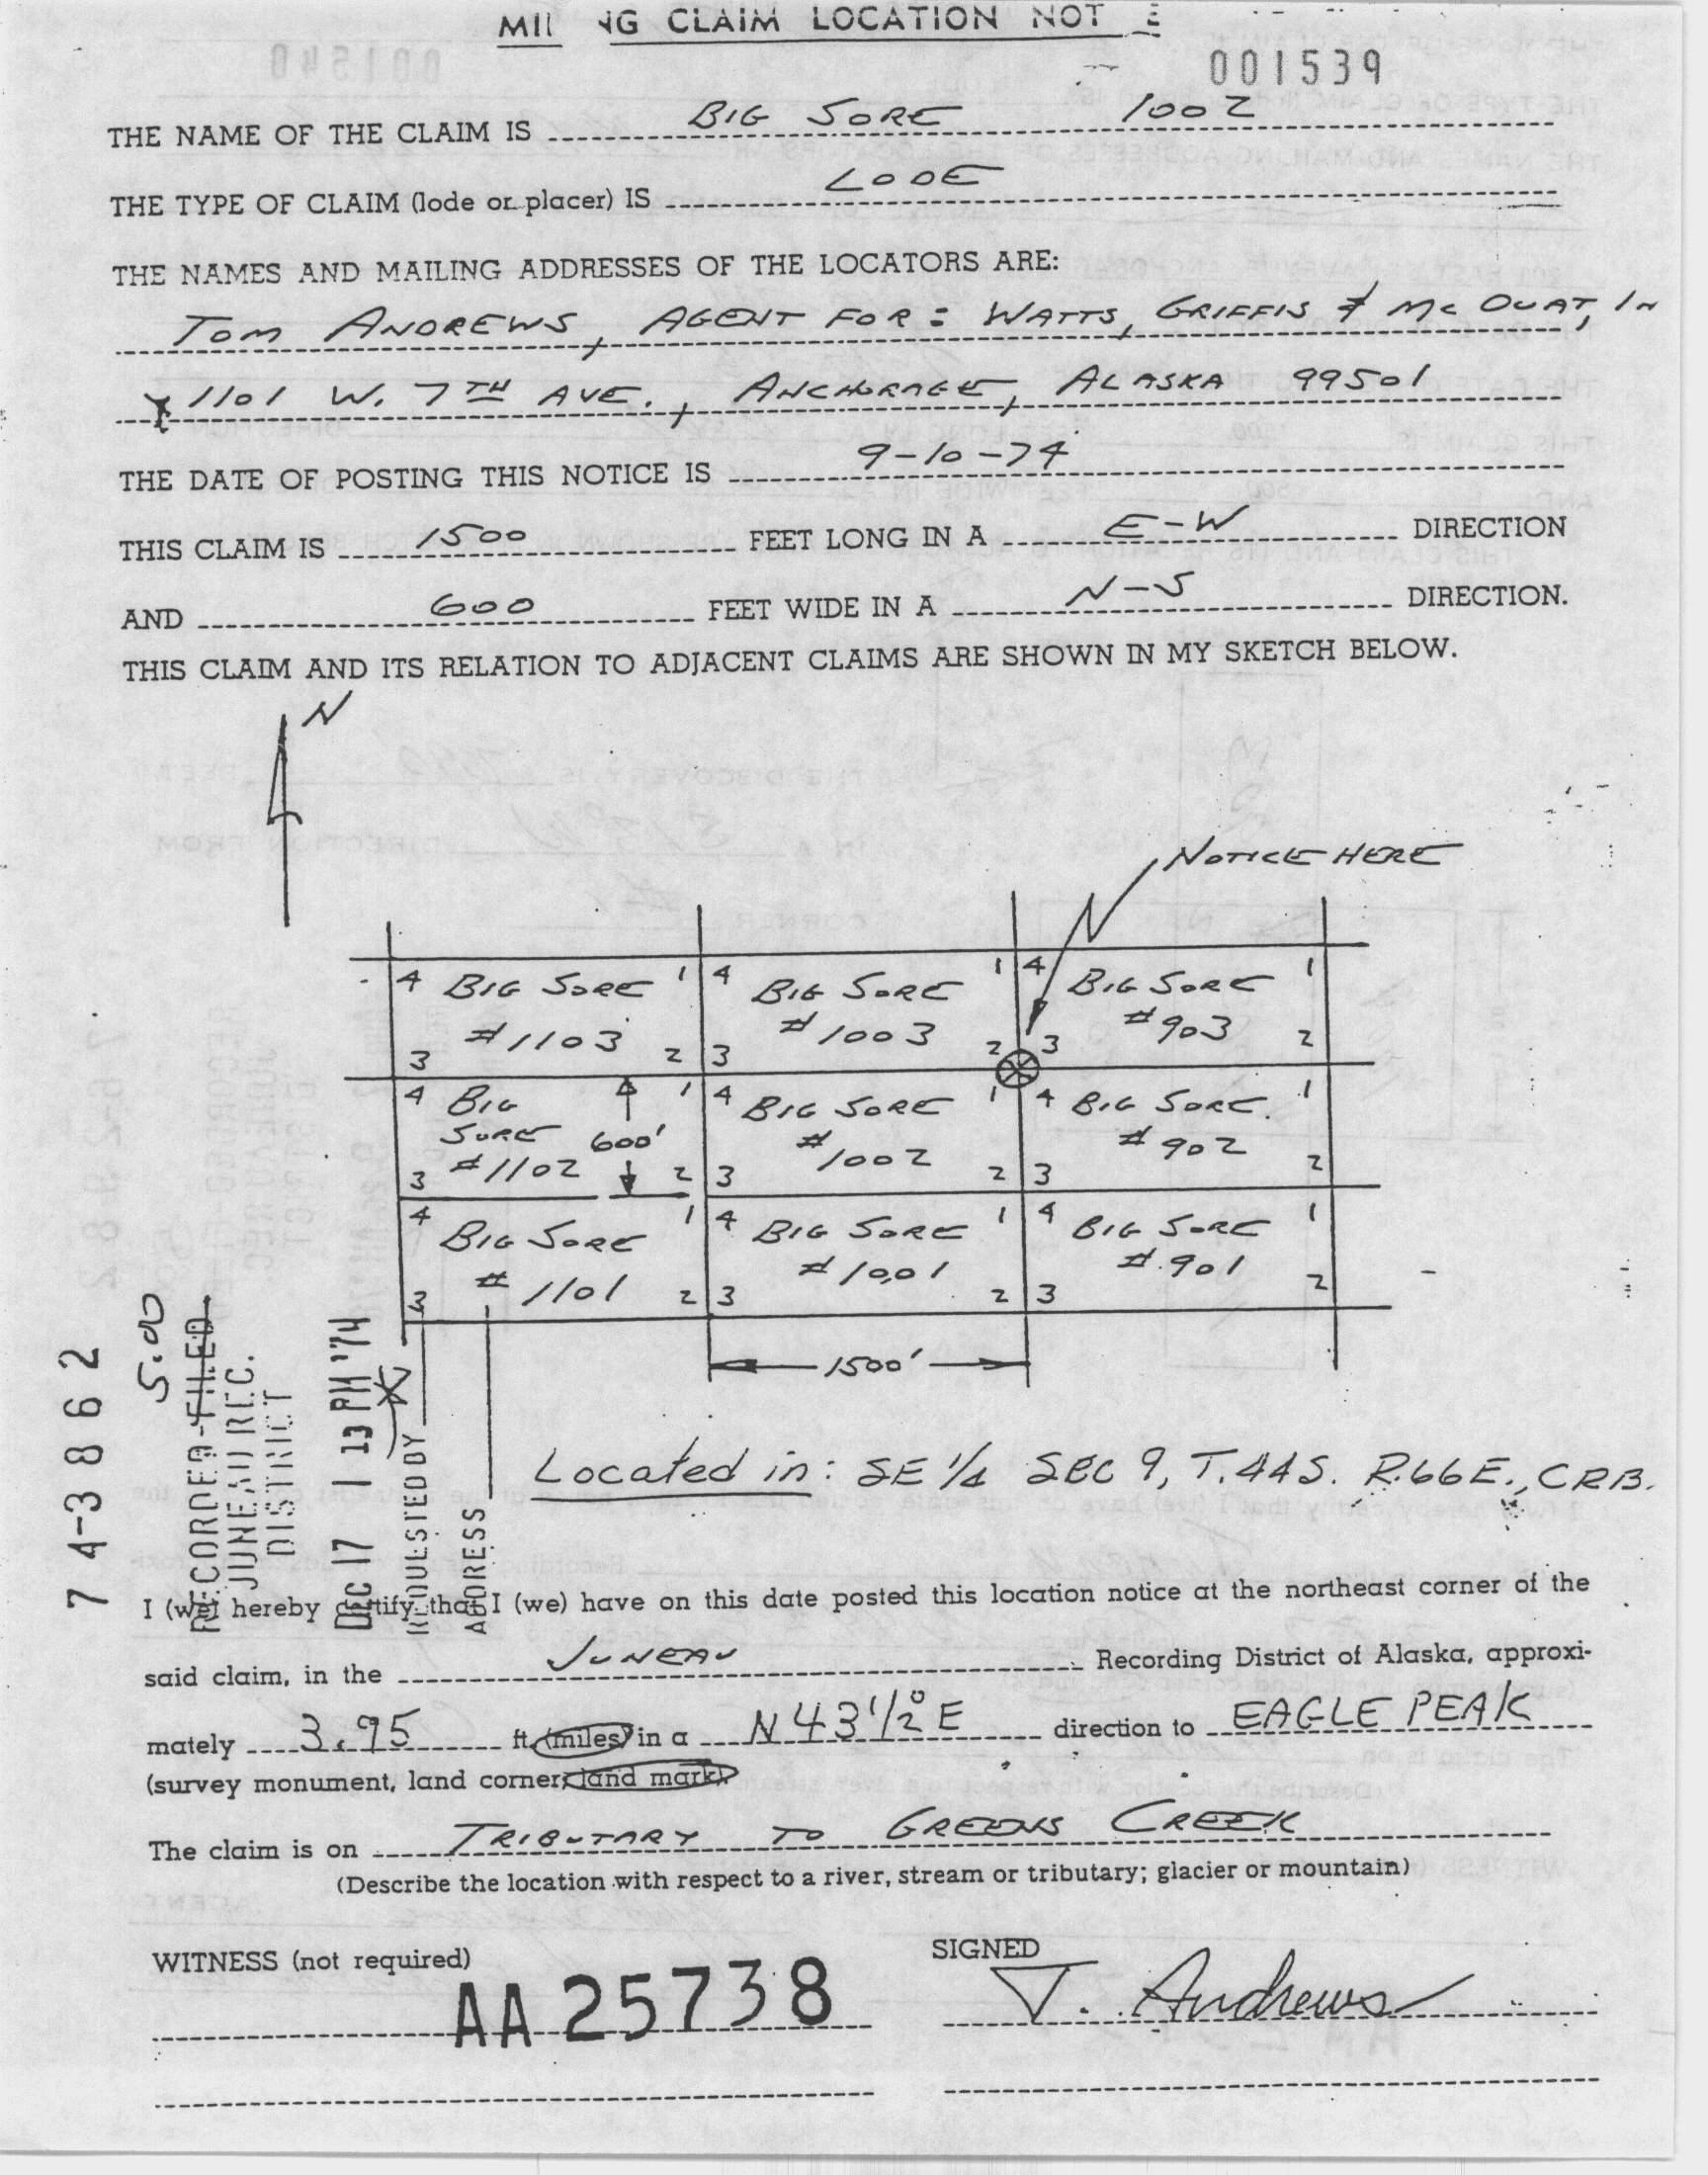 MINING CLAIM LOCATION NOTICE
001539
THE NAME OF THE CLAIM IS BIG SORE 1002
THE TYPE OF CLAIM (lode or placer) IS LODE
THE NAMES AND MAILING ADDRESSES OF THE LOCATORS ARE:
TOM ANDREWS, AGENT FOR: WATTS, GRIFFIS & McOUAT, IN
1101 W. 7TH AVE., ANCHORAGE, ALASKA 99501
THE DATE OF POSTING THIS NOTICE IS 9-10-74
THIS CLAIM IS 1500 FEET LONG IN A E-W DIRECTION
AND 600 FEET WIDE IN A N-S DIRECTION.
THIS CLAIM AND ITS RELATION TO ADJACENT CLAIMS ARE SHOWN IN MY SKETCH BELOW.
N
NOTICE HERE
4 BIG SORE 1 4 BIG SORE 1 4 BIG SORE 1
3 #1103 2 3 #1003 2 3 #903 2
4 BIG 1 4 BIG SORE 1 4 BIG SORE 1
SORE 600'
3 #1102 2 3 #1002 2 3 #902 2
4 BIG SORE 1 4 BIG SORE 1 4 BIG SORE 1
3 #1101 2 3 #1001 2 3 #901 2
1500'
74-3862
5.00
RECORDED-FILED
JUNEAU REC.
DISTRICT
DEC 17 1 13 PM '74
REQUESTED BY
ADDRESS
Located in: SE 1/4 SEC 9, T.44S. R.66E., CRB.
I (we) hereby certify that I (we) have on this date posted this location notice at the northeast corner of the
said claim, in the JUNEAU Recording District of Alaska, approxi-
mately 3.95 ft. (miles) in a N 43 1/2° E direction to EAGLE PEAK
(survey monument, land corner, land mark).
The claim is on TRIBUTARY TO GREENS CREEK
(Describe the location with respect to a river, stream or tributary; glacier or mountain)
WITNESS (not required) SIGNED
AA 25738 T. Andrews